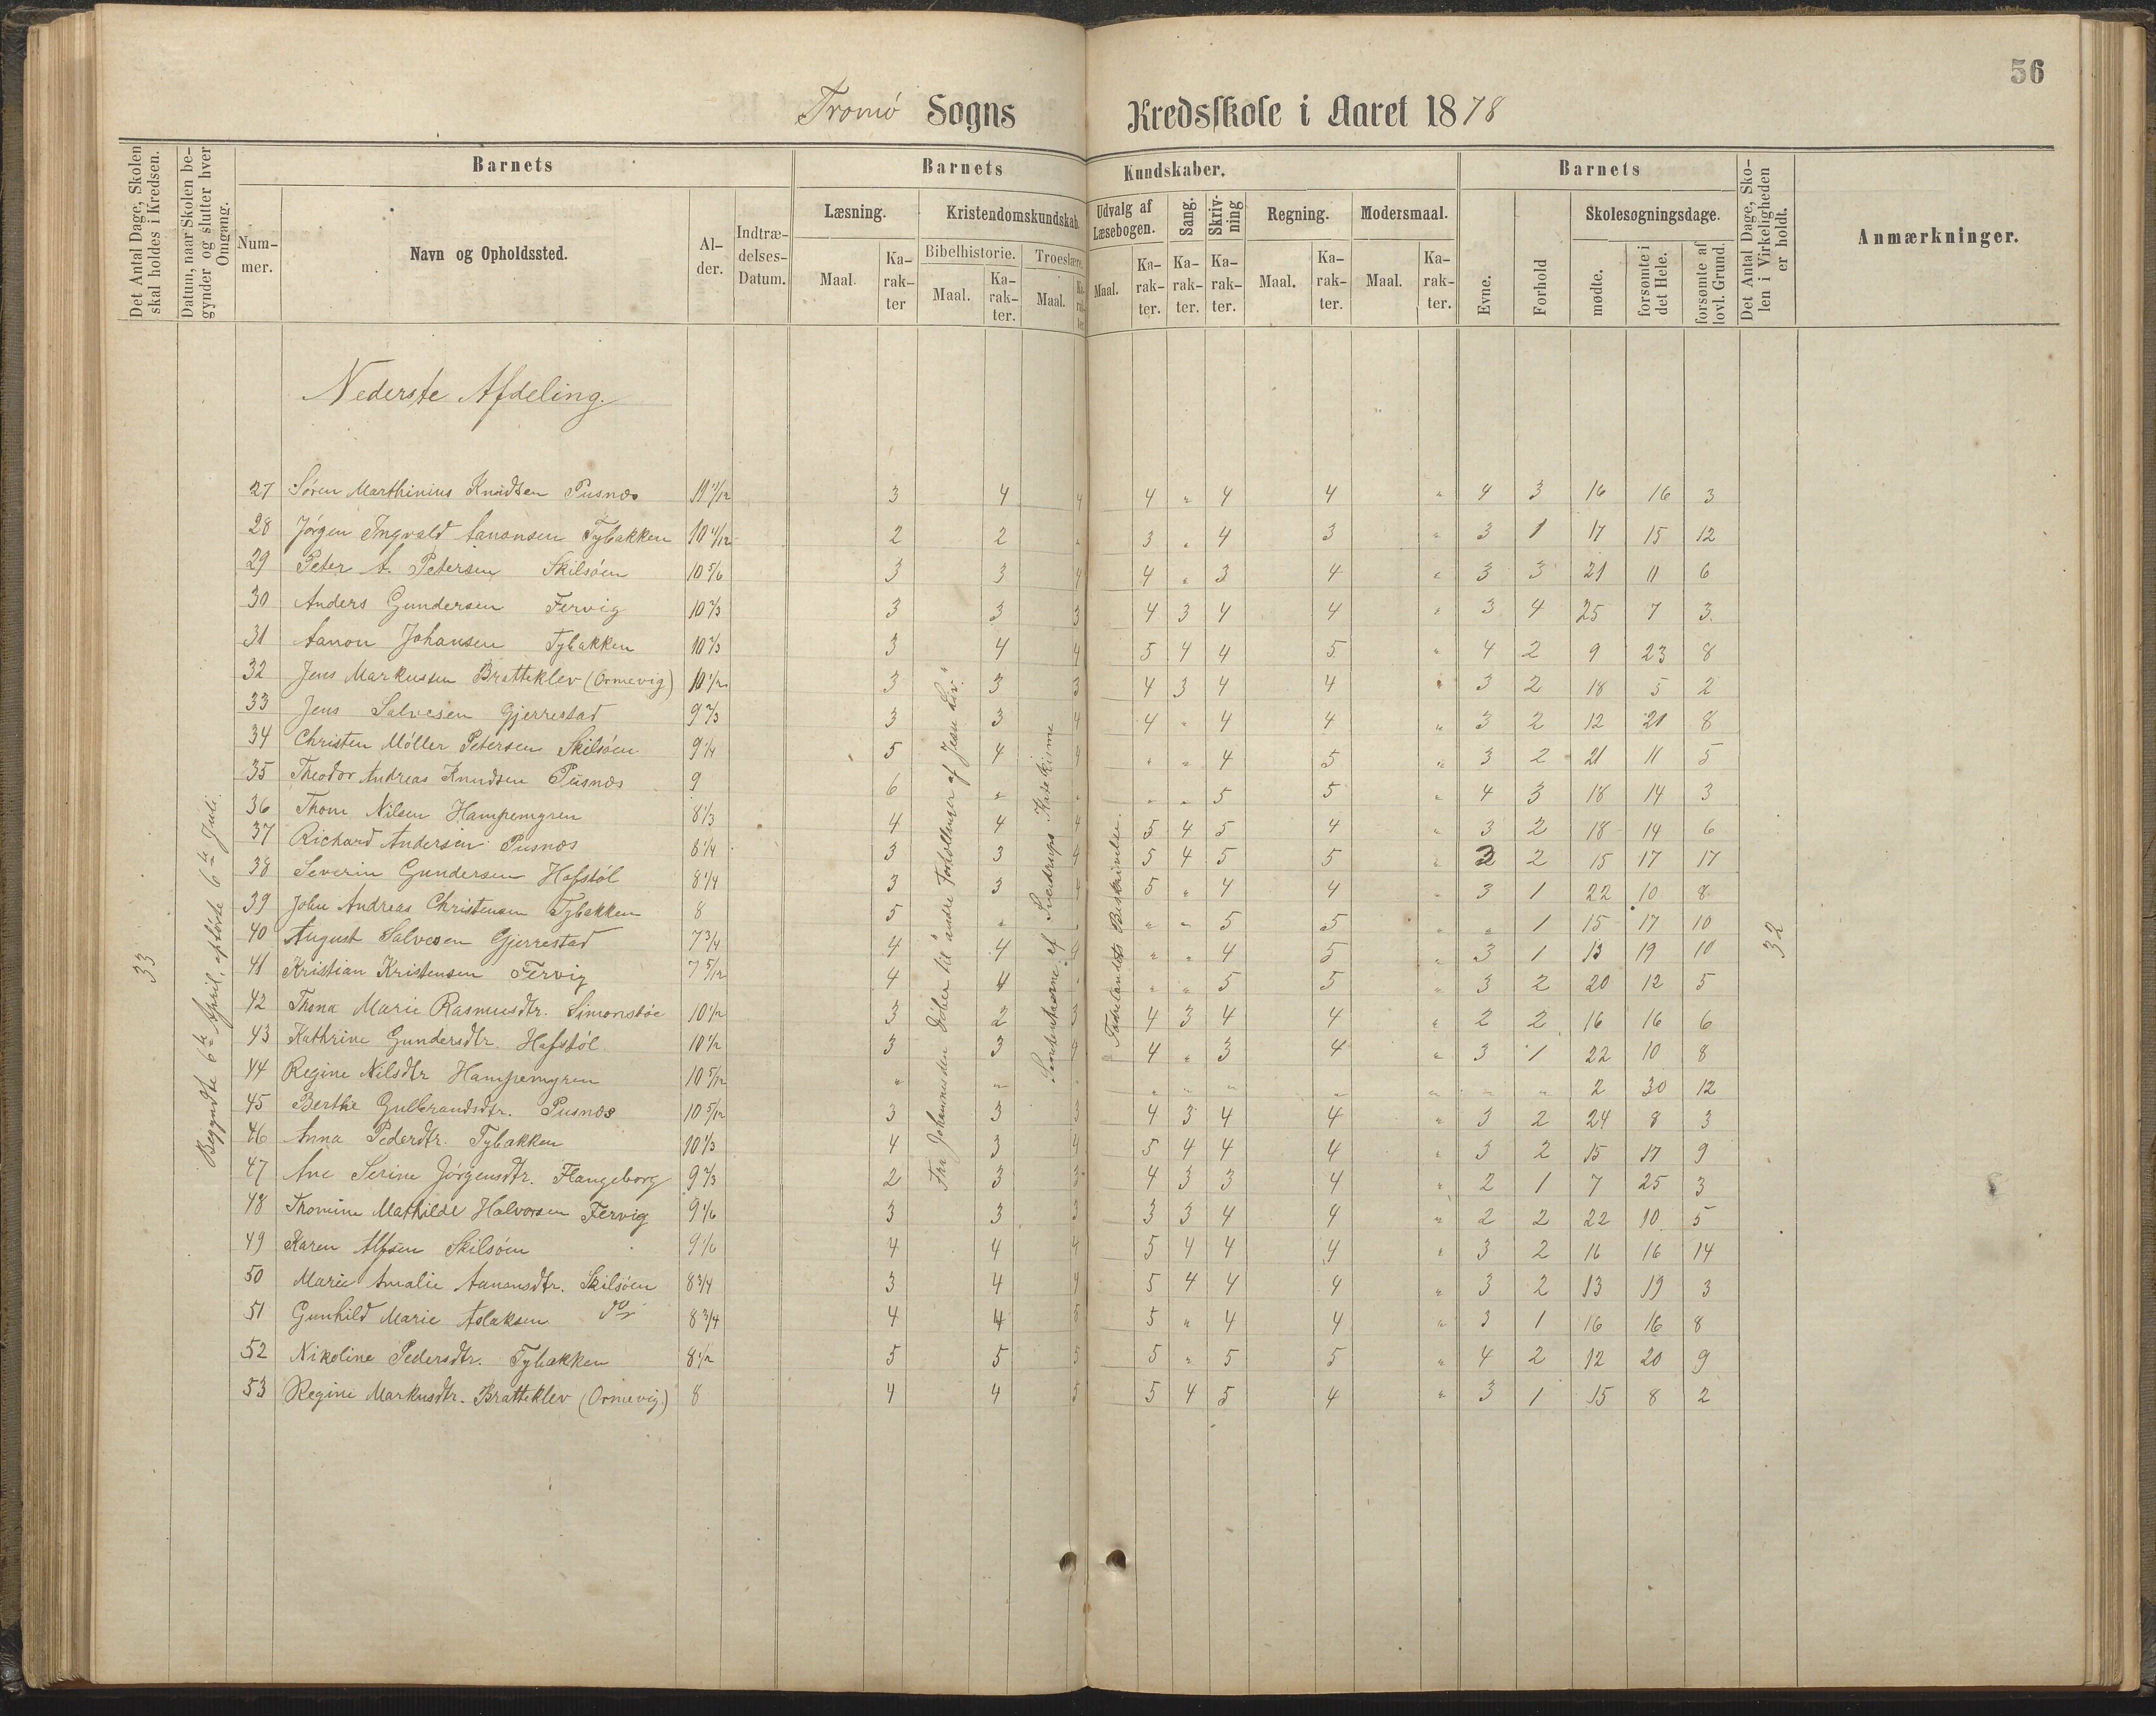 56
Tromö Sogns Kredsskole i Aaret 1878
Det Antal Dage, Skolen skal holdes i Kredsen.
Datum, naar Skolen begynder og slutter hver Omgang.
Barnets
Nummer.
Navn og Opholdssted.
Alder.
Indtrædelses-Datum.
Barnets Kundskaber.
Læsning.
Maal.
Karakter
Kristendomskundskab.
Bibelhistorie.
Maal.
Karakter.
Troeslære.
Maal.
Karakter.
Udvalg af Læsebogen.
Maal.
Karakter.
Sang.
Karakter.
Skrivning
Karakter.
Regning.
Maal.
Karakter.
Modersmaal.
Maal.
Karakter.
Barnets
Evne.
Forhold
Skolesøgningsdage.
mødte.
forsømte i det Hele.
forsømte af lovl. Grund.
Det Antal Dage, Skolen i Virkeligheden er holdt.
Anmærkninger.
33
Begyndte 6te April, ophørte 6te Juli.
Nederste Afdeling.
Fra Johannes den Døber til "andre Fortællinger af Jesu Liv."
Katekisme
Fædrelandets Beskrivelse.
32
27 Søren Marthinius Knudsen Pusnæs 11 1/12 3 4 4 4 " 4 4 " 4 3 16 16 3
28 Jørgen Ingvald Aanonsen Tybakken 10 11/12 2 2 " 3 " 4 3 " 3 1 17 15 12
29 Peter A. Petersen Skilsøen 10 5/6 3 3 4 4 " 3 4 " 3 3 21 11 6
30 Anders Gundersen Fervig 10 2/3 3 3 3 4 3 4 4 " 3 4 25 7 3
31 Aanon Johansen Tybakken 10 2/3 3 4 4 5 4 4 5 " 4 2 9 23 8
32 Jens Markussen Bratteklev (Ormevig) 10 1/2 3 3 3 4 3 4 4 " 3 2 18 5 2
33 Jens Salvesen Gjerrestad 9 2/3 3 3 4 4 " 4 4 " 3 2 12 21 8
34 Christen Möller Petersen Skilsøen 9 1/4 5 4 4 " " 4 5 " 3 2 21 11 5
35 Theodor Andreas Knudsen Pusnæs 9 6 " " " " 5 5 " 4 3 18 14 3
36 Thom Nilsen Hampemyren 8 1/3 4 4 4 5 4 5 4 " 3 2 18 14 6
37 Richard Andersen Pusnæs 8 1/4 3 3 4 5 4 5 5 " 3 2 15 17 17
38 Severin Gundersen Hafstöl 8 1/4 3 3 4 5 " 4 4 " 3 1 22 10 8
39 John Andreas Christensen Tybakken 8 5 " " " " 5 5 " " 1 15 17 10
40 August Salvesen Gjerrestad 7 3/4 4 4 " " 4 5 " 3 1 13 19 10
41 Kristian Kristensen Fervig 7 5/12 4 4 " " " 5 5 " 3 2 20 12 5
42 Thona Marie Rasmusdtr. Simonstøe 10 1/2 3 2 3 4 3 4 4 " 2 2 16 16 6
43 Kathrine Gundersdtr. Hafstöl 10 1/2 3 3 4 4 " 3 4 " 3 1 22 10 8
44 Regine Nilsdtr Hampemyren 10 5/12 " " " " " " " " " " 2 30 12
45 Berthe Gulbrandsdtr. Pusnæs 10 5/12 3 3 3 4 3 4 4 " 3 2 24 8 3
46 Anna Pederdtr. Tybakken 10 1/3 4 3 4 5 4 4 4 " 3 2 15 17 9
47 Ane Serine Jørgensdtr. Flangeborg 9 2/3 2 3 3 4 3 3 4 " 2 1 7 25 3
48 Thomine Mathilde Halvorsen Fervig 9 1/6 3 3 3 3 3 4 4 " 2 2 22 10 5
49 Karen Alfsen Skilsøen 9 1/6 4 4 4 5 4 4 4 " 3 2 16 16 14
50 Marie Amalie Aanonsdtr. Skilsøen 8 3/4 3 4 4 5 4 4 4 " 3 2 13 19 3
51 Gunhild Marie Aslaksen do 8 3/4 4 4 5 5 " 4 4 " 3 1 16 16 8
52 Nikoline Pedersdtr. Tybakken 8 1/2 5 5 5 5 " 5 5 " 4 2 12 20 9
53 Regine Markusdtr. Bratteklev (Ormevig.) 8 4 4 5 5 4 5 4 " 3 1 15 8 2